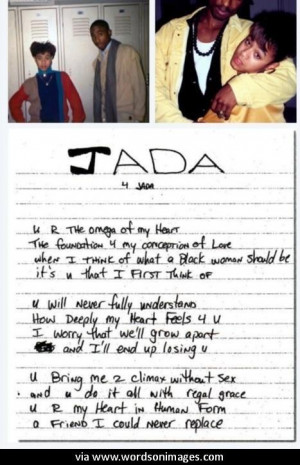 JADA
4 JADA
U R THE omega of my Heart
THE foundation 4 my conception of Love
when I THink of what a Black woman should be
it's u that I First Think of
U will Never fully understand
How Deeply my Heart Feels 4 U
I worry that we'll grow apart
and I'll end up losing u
U Bring me 2 climax without sex
and u do it all with regal grace
U R my Heart in Human Form
a Friend I could never replace
via www.wordsonimages.com